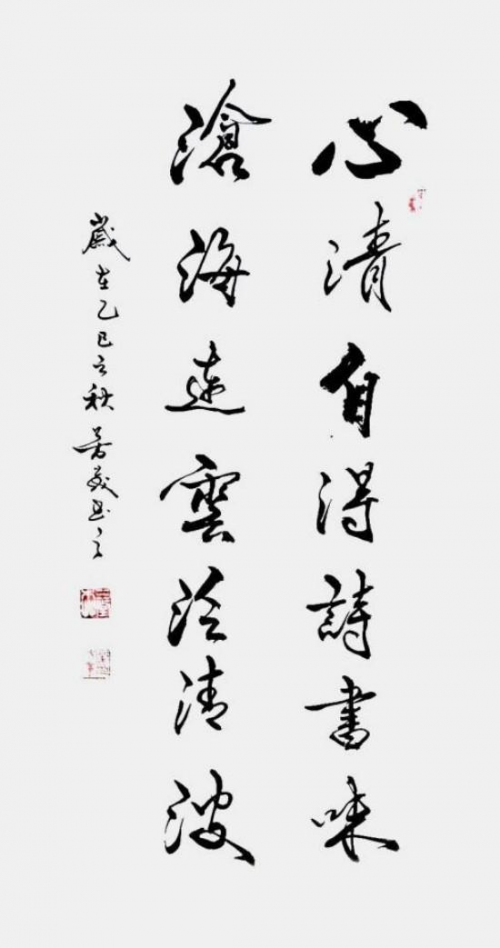 心清自得詩書味
滄海遠雲泛清波
歲在乙巳之秋芳书之